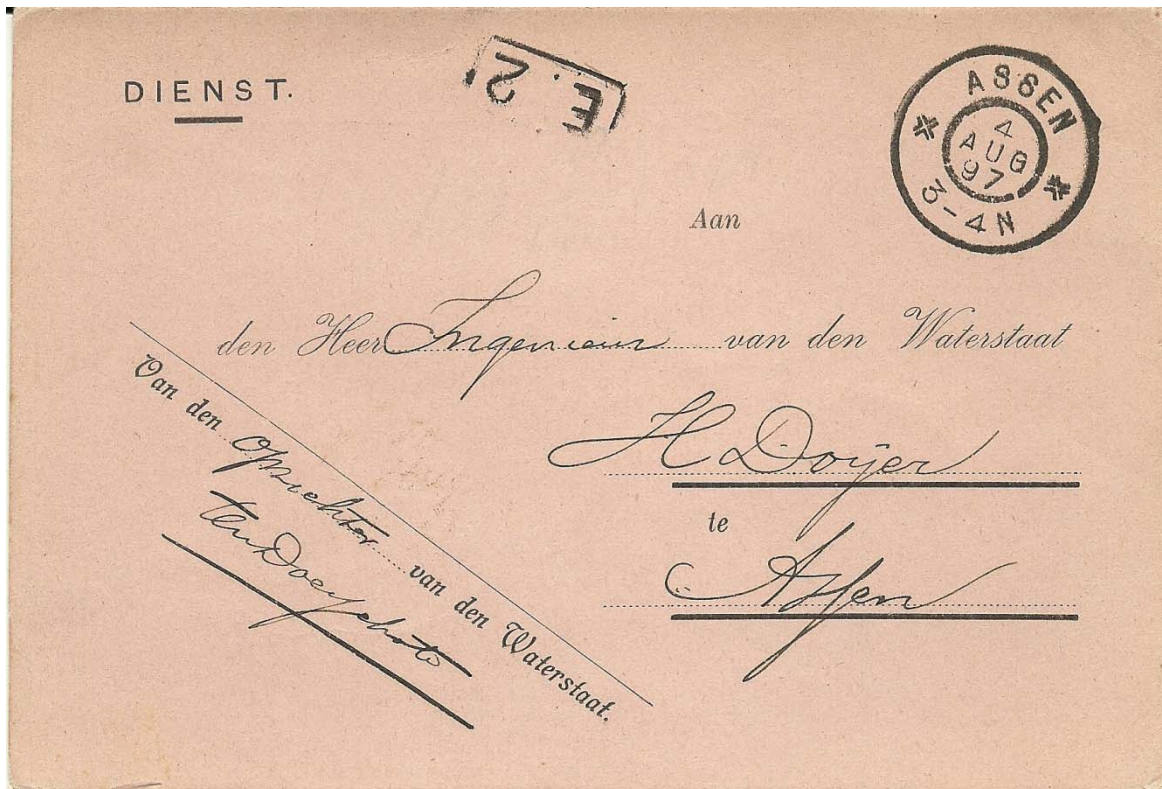 DIENST.
E. 2.
ASSEN
4
AUG
97
3-4N
Aan
den Heer Ingenieur van den Waterstaat
H Doijer
te
Assen
Van den Opzichter van den Waterstaat.